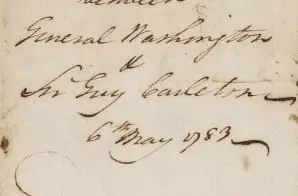 between
General Washington
&
Sir Guy Carleton
6th May 1783